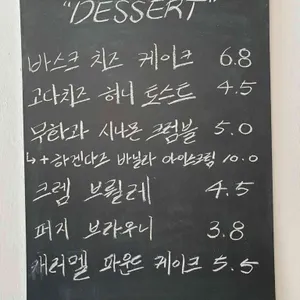 "DESSERT"
바스크 치즈 케이크 6.8
고다치즈 허니 토스트 4.5
무화과 시나몬 크럼블 5.0
↳ + 하겐다즈 바닐라 아이스크림 10.0
크렘 브륄레 4.5
퍼지 브라우니 3.8
캐러멜 파운드 케이크 5.5